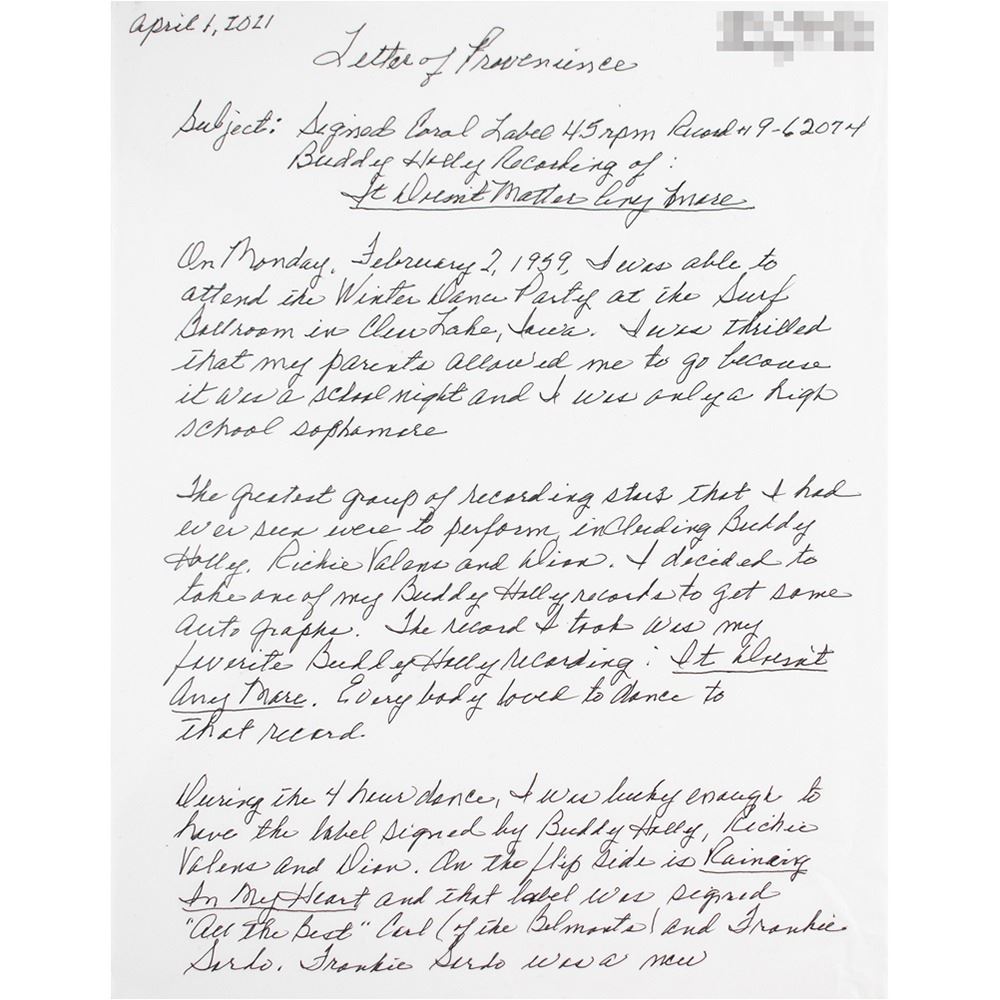 April 1, 2021
Letter of Provenience
Subject: Signed Coral Label 45 rpm Record #9-62074
Buddy Holly Recording of:
It Doesn't Matter Any More
On Monday, February 2, 1959, I was able to
attend the Winter Dance Party at the Surf
Ballroom in Clear Lake, Iowa. I was thrilled
that my parents allowed me to go because
it was a school night and I was only a high
school sophamore
The greatest group of recording stars that I had
ever seen were to perform, including Buddy
Holly, Richie Valens and Dion. I decided to
take one of my Buddy Holly records to get some
autographs. The record I took was my
favorite Buddy Holly recording: It Doesn't
Any More. Everybody loved to dance to
that record.
During the 4 hour dance, I was lucky enough to
have the label signed by Buddy Holly, Richie
Valens and Dion. On the flip side is Raining
In My Heart and that label was signed
"All The Best" Carl (of the Belmonts) and Frankie
Sardo. Frankie Sardo was a new